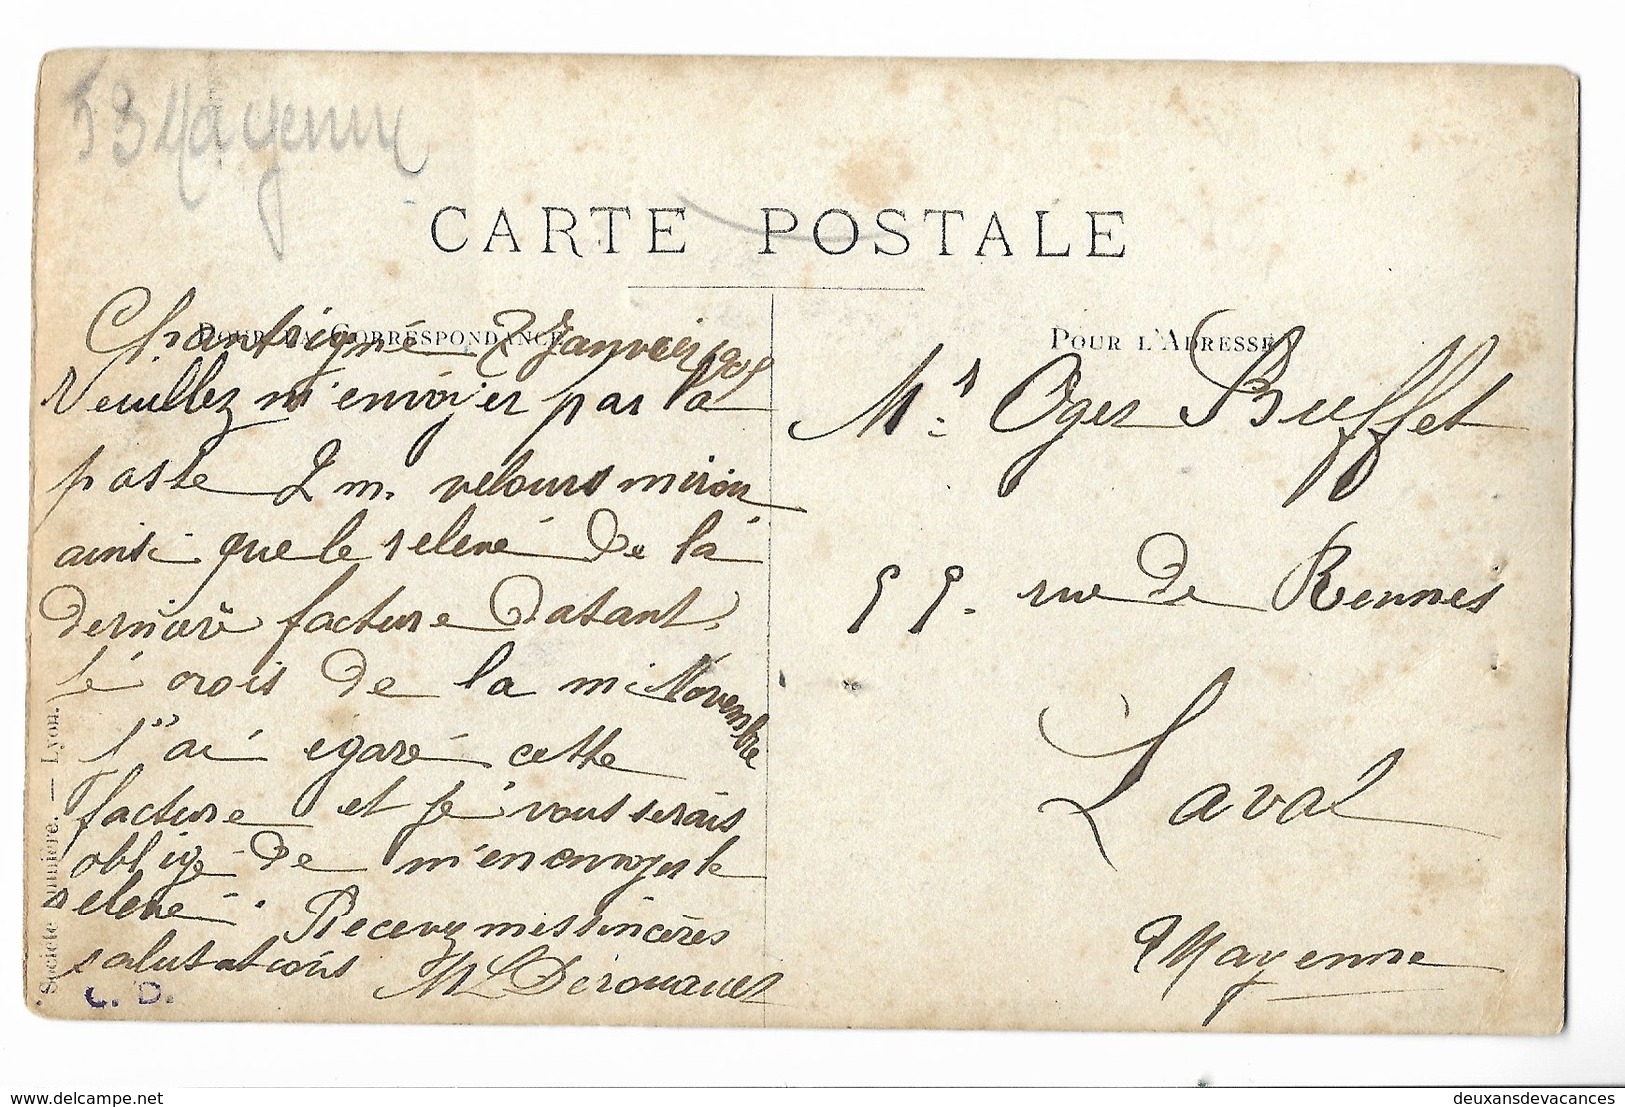 53 Mayenne
CARTE POSTALE
POUR LA CORRESPONDANCE
POUR L'ADRESSE
Chantrigné 2 Janvier
Veuillez m'envoyer par la
poste 2 m. velours miroir
ainsi que le relevé de là
dernière facture datant
je crois de la mi Novembre
j'ai égaré cette
facture et je vous serais
obligé de m'en envoyer le
relevé. Recevez mes sincères
salutations ML Derouault
Mr: Oger Buffet
99. rue de Rennes
Laval
Mayenne
Société Lumière. — Lyon.
C. D.
deuxansdevacances